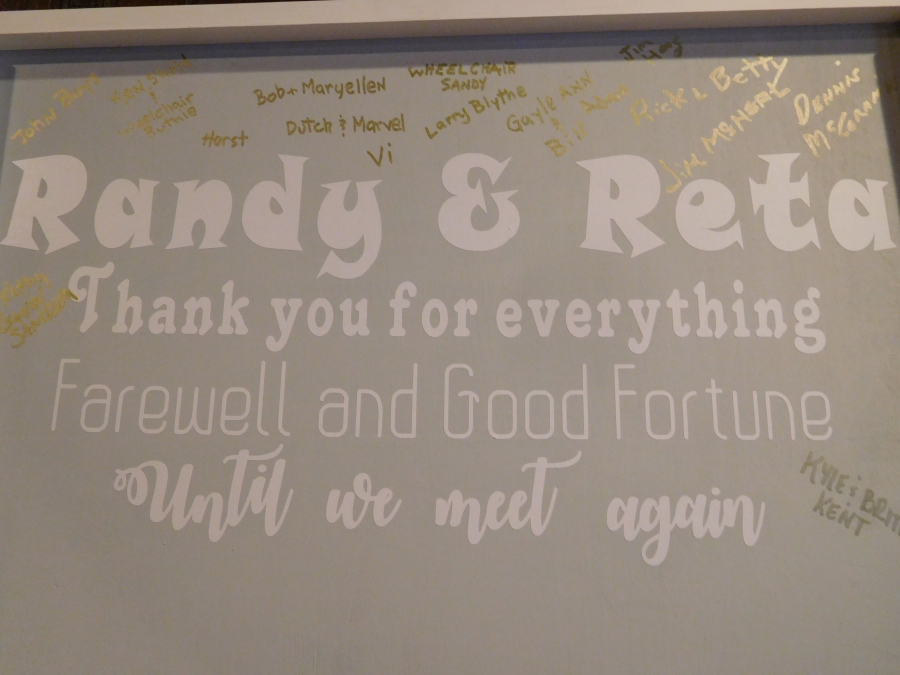 John
Ken
&
Wheelchair
Ruthie
Horst
Bob + Maryellen
Dutch & Marvel
Vi
WHEELCHAIR
SANDY
Larry Blythe
Gayle ANN
&
Bill
Jim
Rick & Betty
Jim McNERL
DENNIS
Randy & Reta
Thank you for everything
Farewell and Good Fortune
Until we meet again
KYLE &
KENT